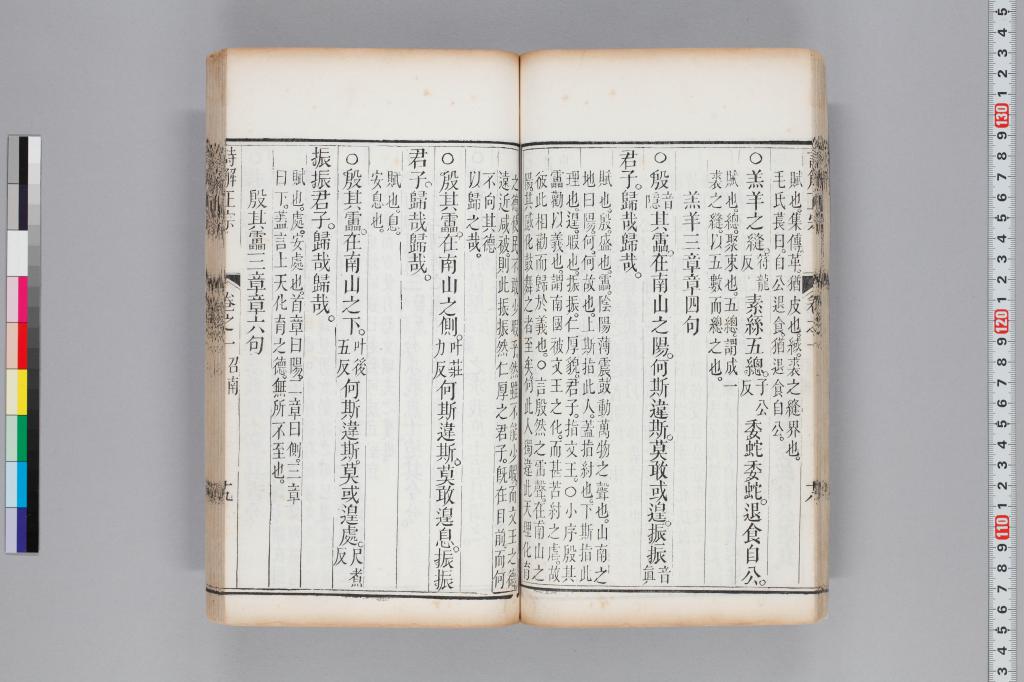 賦也集傳革猶皮也緎裘之縫界也。
毛氏萇曰自公退食猶退食自公。
○羔羊之縫符龍反素絲五總子公反委蛇委蛇。退食自公。
賦也總聚束也五總謂成一
裘之縫以五數而總之也。
羔羊三章章四句
○殷音隱其靁在南山之陽。何斯違斯。莫敢或遑。振振音眞
君子。歸哉歸哉。
賦也。殷盛也。靁陰陽薄震鼓動萬物之聲也。山南之
地曰陽。何何故也。上斯指此人。蓋指紂也。下斯指此
理也。遑暇也。振振仁厚貌。君子指文王。○小序殷其
靁勸以義也。謂南國被文王之化而甚苦紂之虐故
彼此相勸而歸於義也。○言殷然之雷聲。在南山之
陽其感化鼓舞之者至矣何此人獨違此天理化育
之德使民不敢少暇乎然雖不能少暇而文王之德
遠近咸被則此振振然仁厚之君子旣在目前而何
不向其德
以歸之哉。
○殷其靁在南山之側叶莊力反何斯違斯。莫敢遑息。振振
君子。歸哉歸哉。
賦也。息
安息也。
○殷其靁在南山之下叶後五反何斯違斯。莫或遑處尺煮反
振振君子。歸哉歸哉。
賦也。處安處也首章曰陽二章曰側三章
曰下蓋言上天化育之德無所不至也。
殷其靁三章章六句
詩解正宗 卷之一 召南 十九